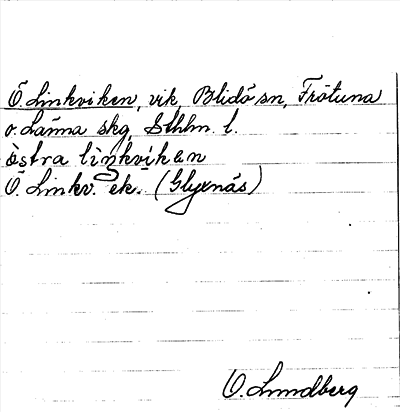 Ö Linkviken, vik, Blidö sn, Frötuna
o. Länna skg, Sthlm. l.
östra lìŋkvíkan
Ö. Linkv. ek. (Glyxnäs)
O. Lundberg